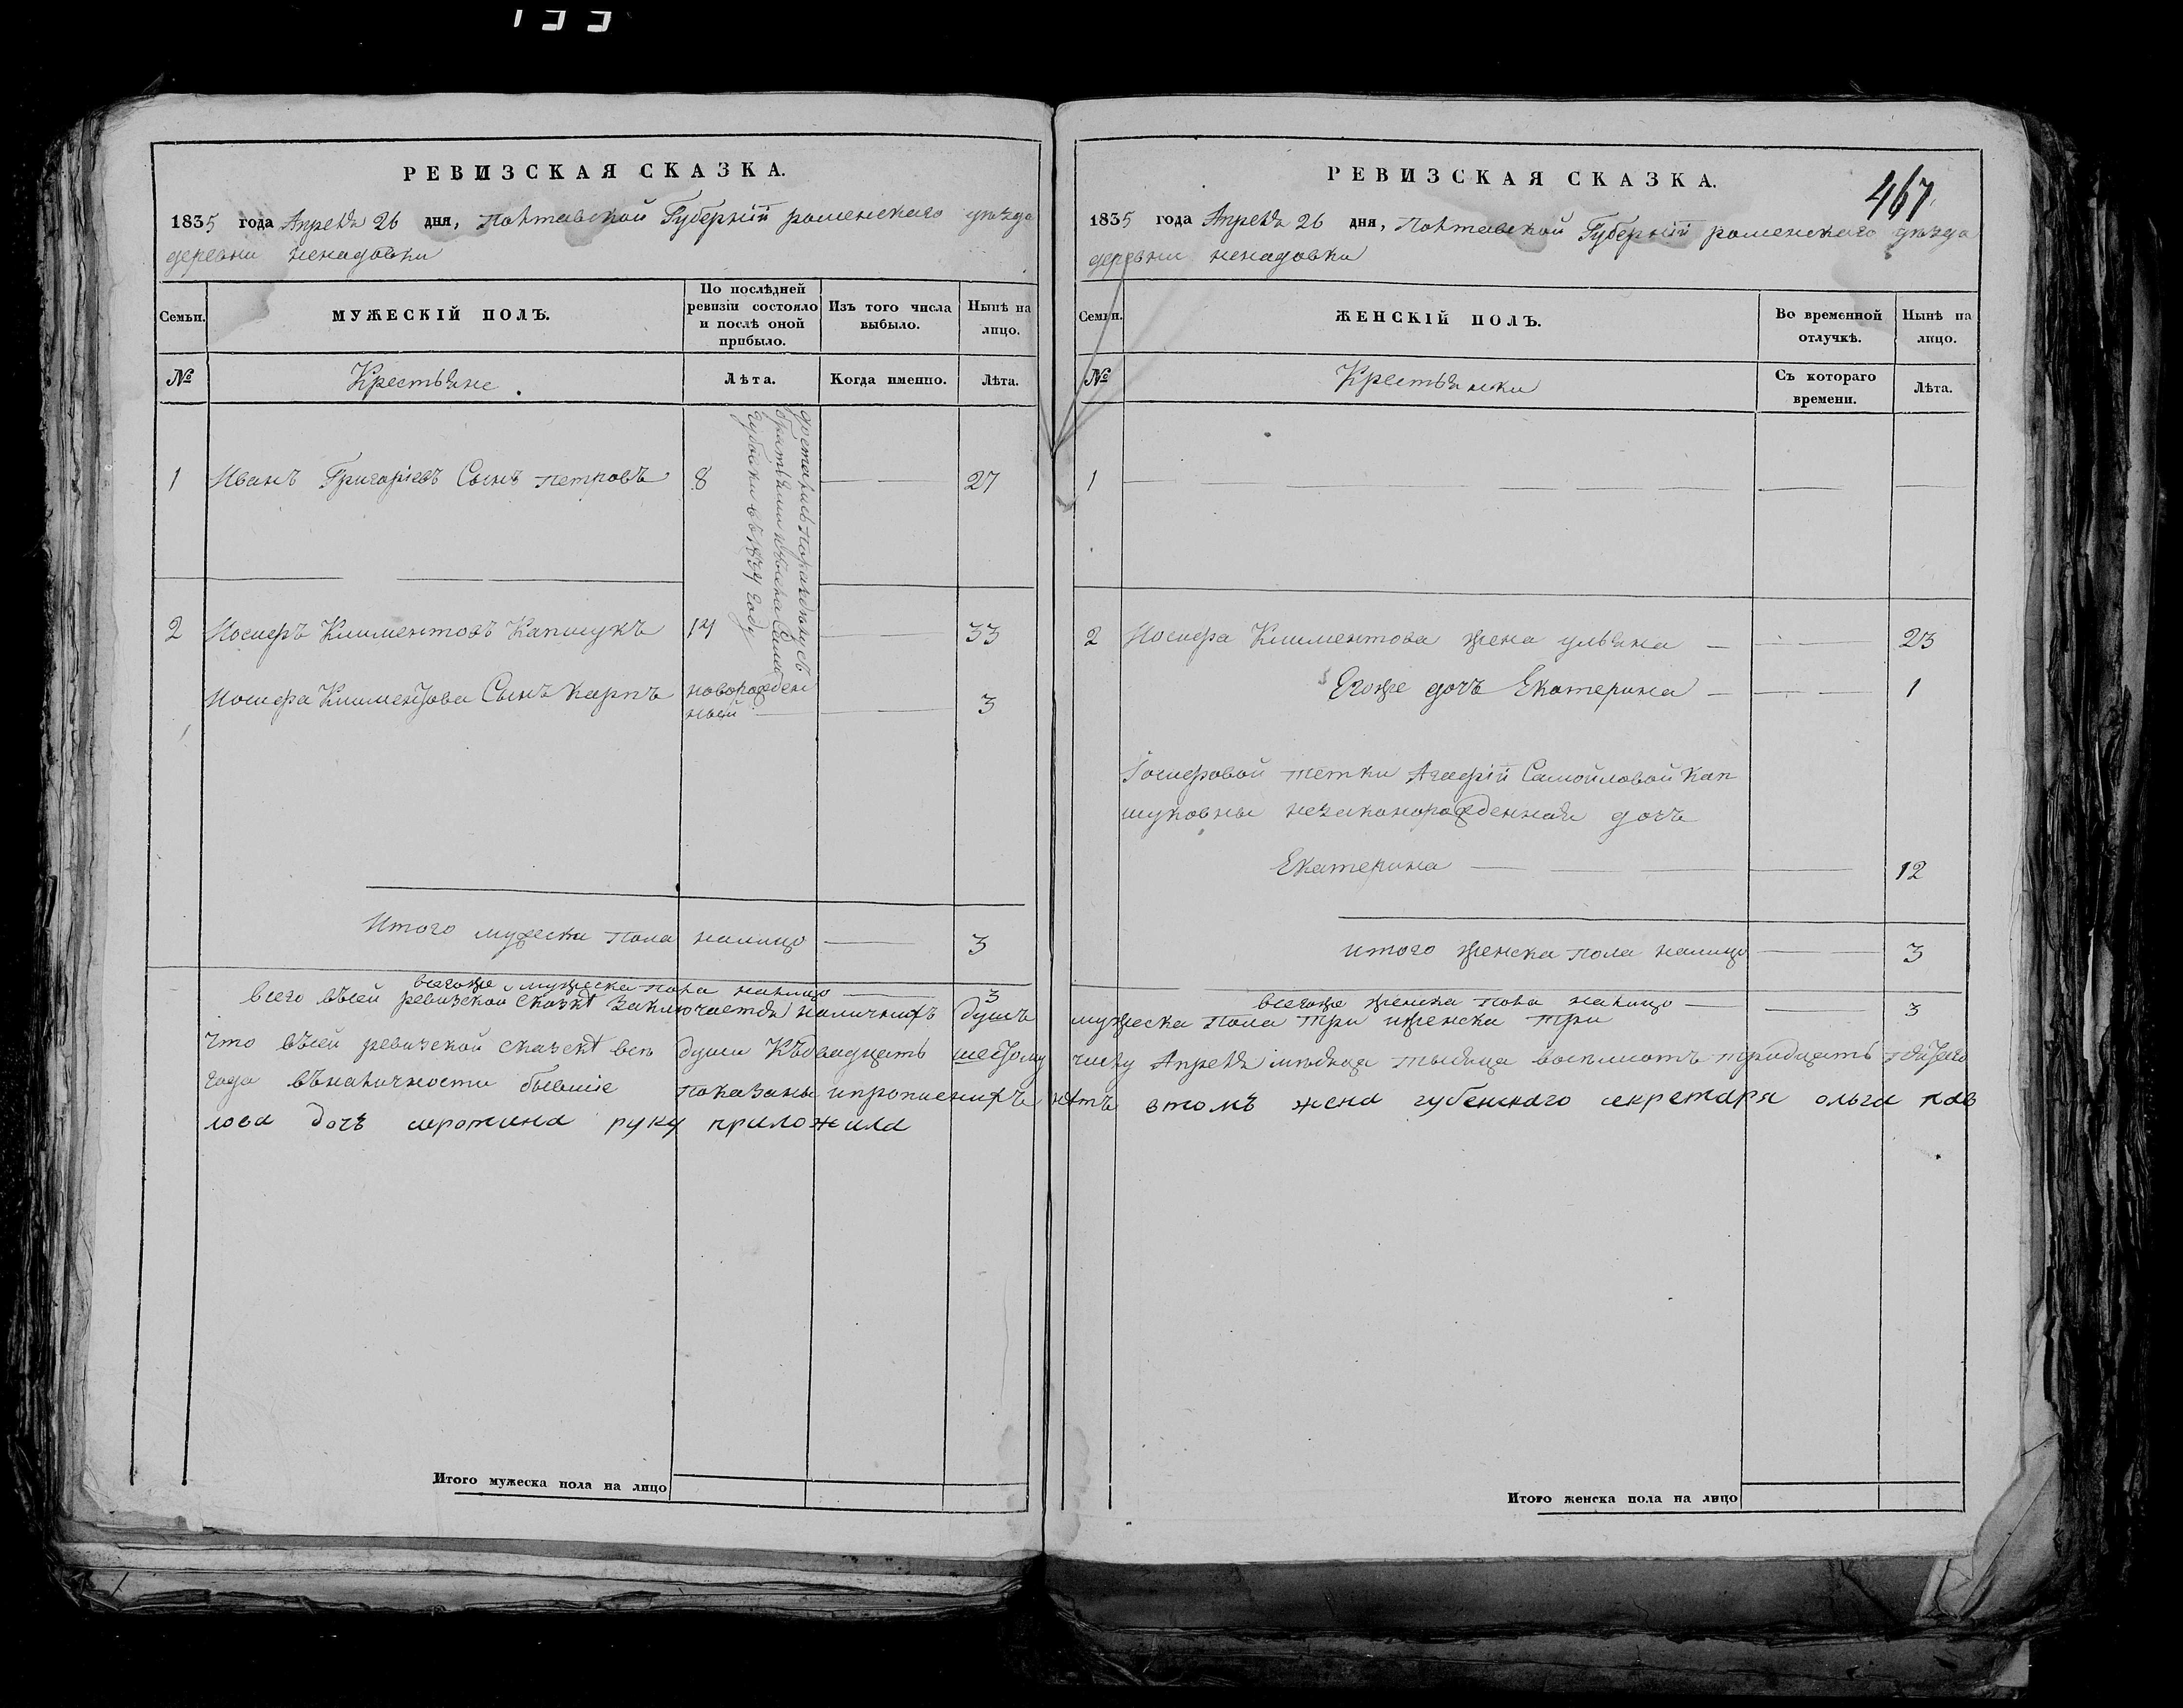 РЕВИЗСКАЯ СКАЗКА.
1835 года Апреля 26 дня, Полтавской Губерніи роменскаго уезда
деревни ненадовки
Семьи.
МУЖЕСКІЙ ПОЛЪ.
По послѣдней ревизіи состояло и послѣ оной прибыло.
Изъ того числа выбыло.
Нынѣ на лицо.
№
Крестьяне.
Лѣта.
Когда именно.
Лѣта.
1 Иванъ Григоріевъ Сынъ петровъ 8 27
въ 1824 году
2 Иосифъ Климентовъ Капшукъ 14 33
Иосифа Климентова Сынъ Карпъ новорожден
ный 3
Итого мужеска пола налицо 3
всегоже мужеска пола налицо 3
всего въсей ревизской сказкѣ заключается наличныхъ душъ
что въсей ревизской сказкѣ всѣ души Къ двадцать шестому
года въналичности бывшіе показаны ипрописныхъ
лова дочъ руку приложила
Итого мужеска пола на лицо
РЕВИЗСКАЯ СКАЗКА.
467
1835 года Апреля 26 дня, Полтавской Губерніи роменскаго уезда
деревни ненадовки
Семьи.
ЖЕНСКІЙ ПОЛЪ.
Во временной отлучкѣ.
Нынѣ на лицо.
№
Крестьянки
Съ котораго времени.
Лѣта.
1
2 Иосифа Климентова жена ульяна 23
Егоже дочъ Екатерина 1
Іосифовой тетки Агафіи Самойловой Кап
шуковны незаконорожденная дочъ
Екатерина 12
итого женска пола налицо 3
всегоже женска пола налицо 3
мужеска пола три иженска три
числу Апреля месяца тысяца восемсотъ тридцать пятаго
нѣтъ втомъ жена губенскаго секретаря ольга пав
Итого женска пола на лицо